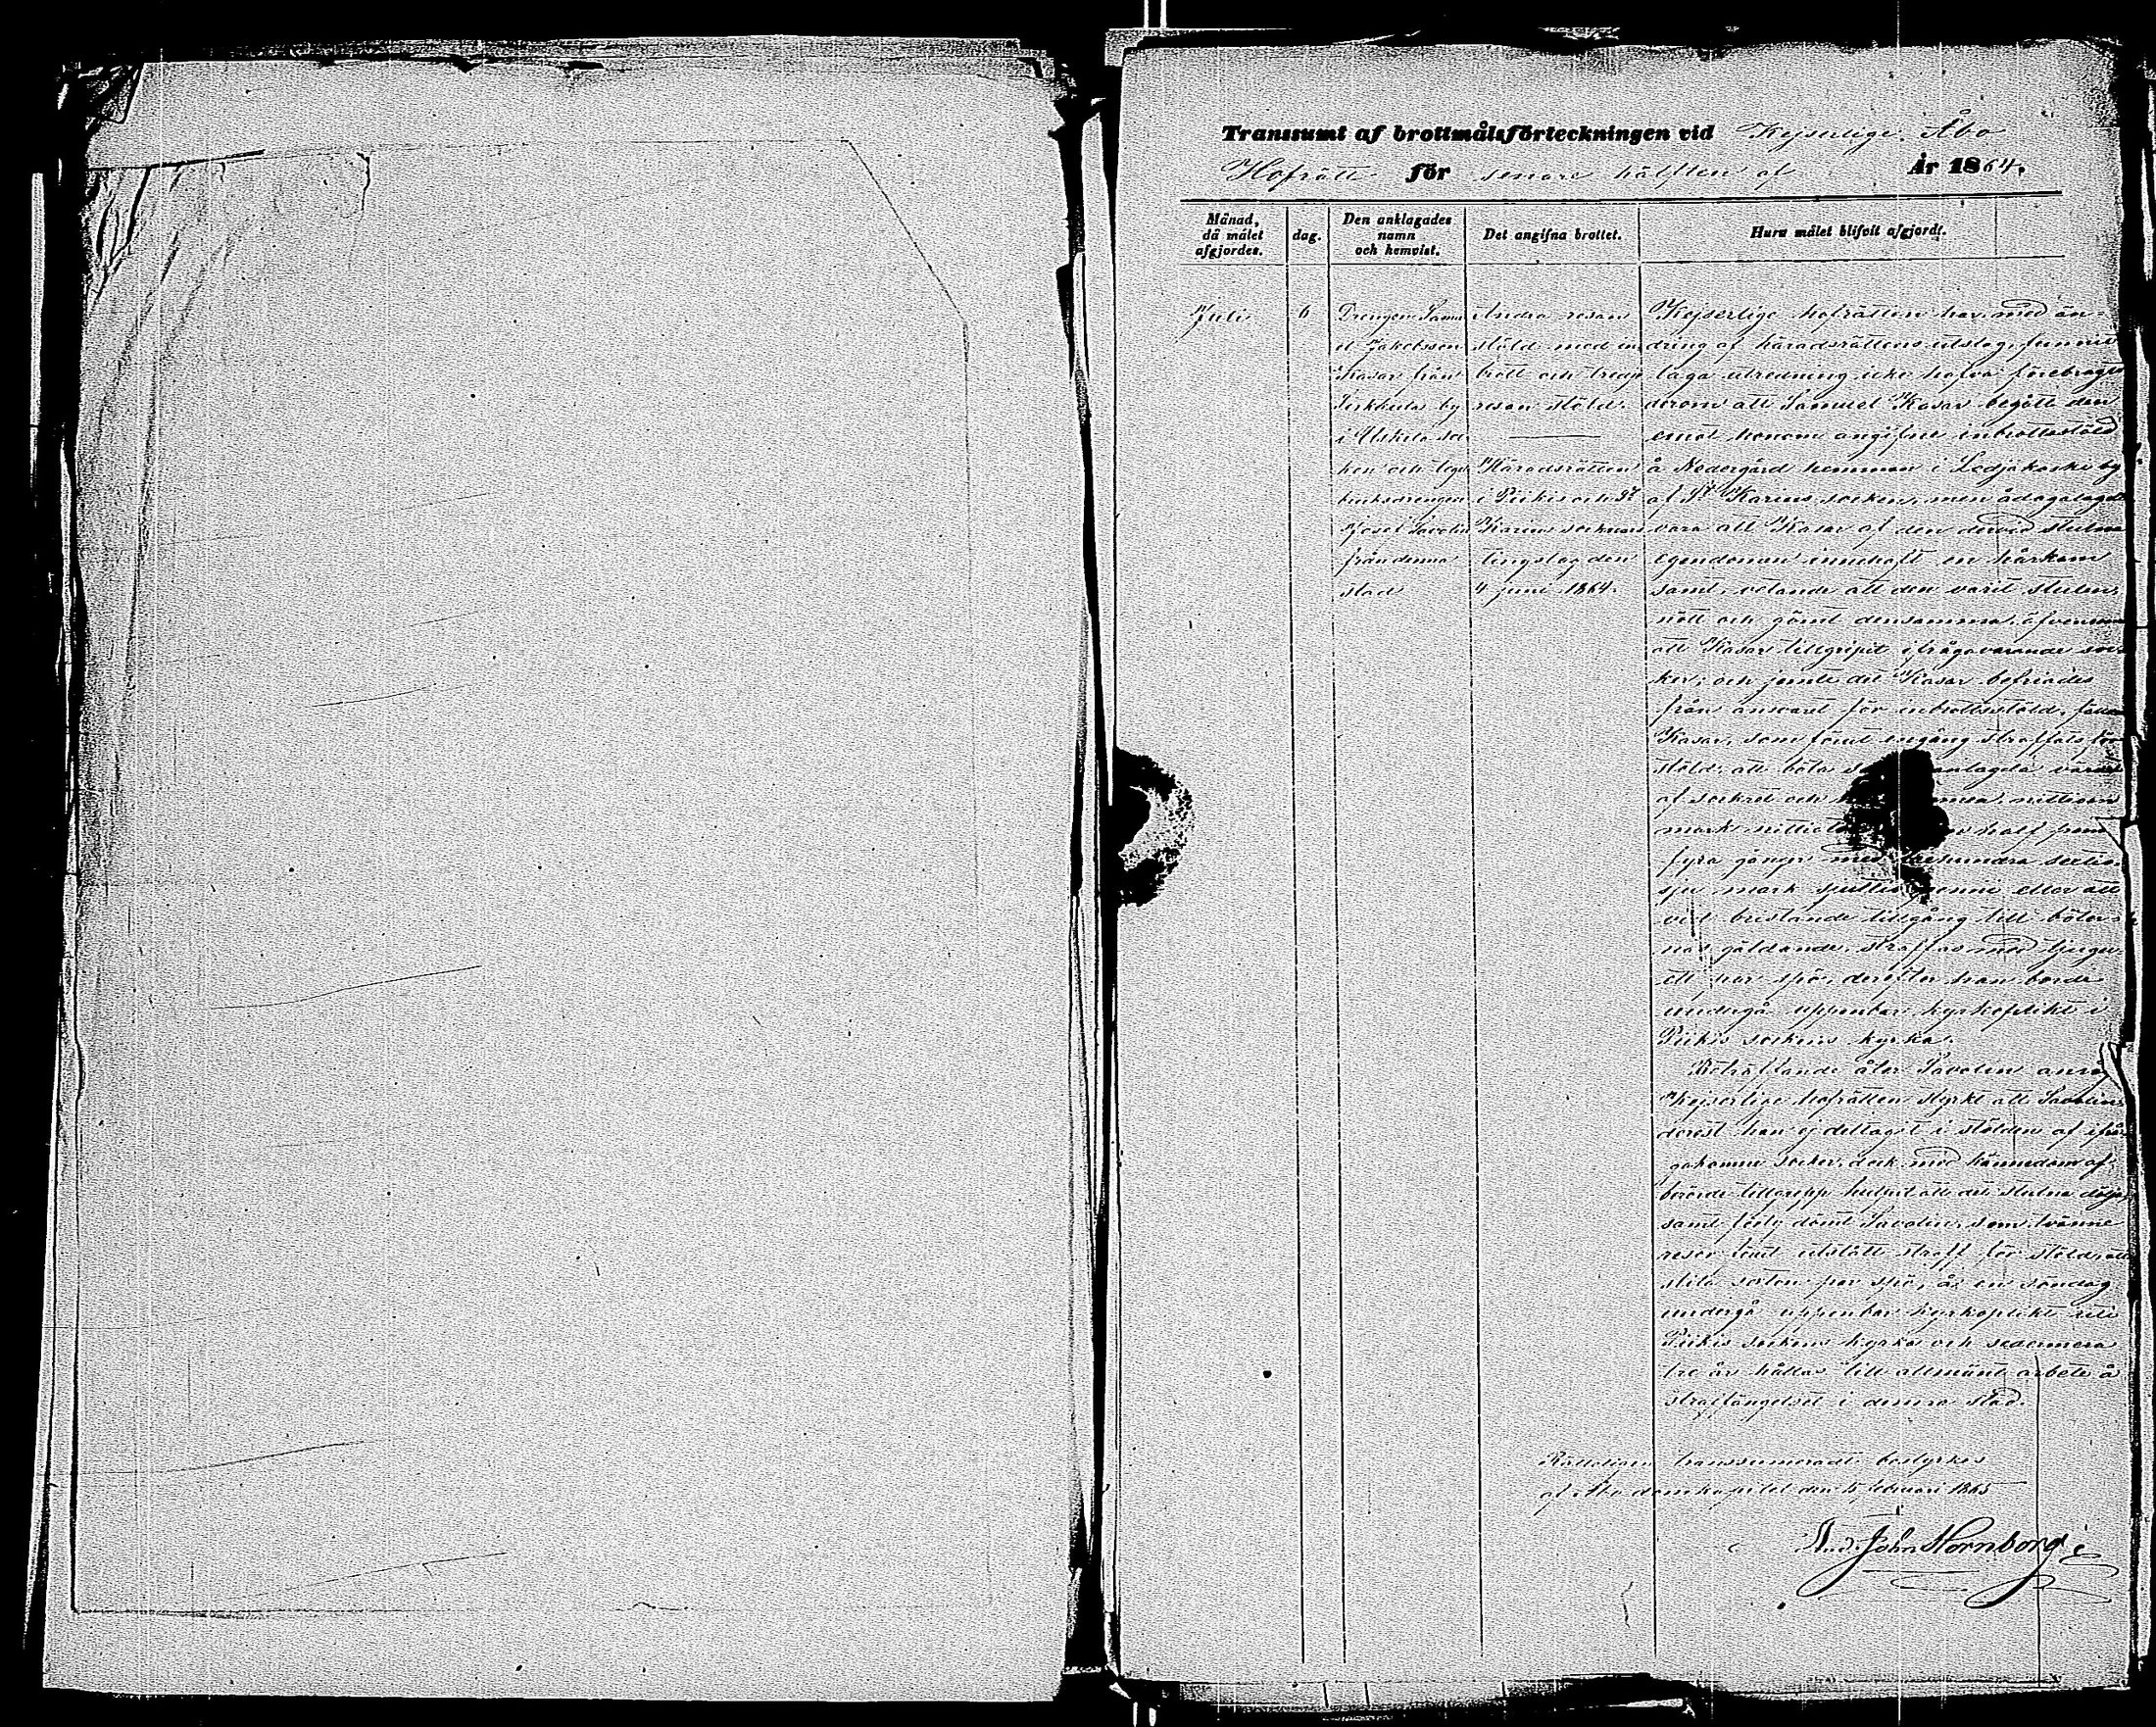 Transsumt af brottmålsförteckningen vid Kejserlige Åbo
Hofrätt för senare hälften af År 1864.
Månad, då målet afgjordes.
dag.
Den anklagades namn och hemvist.
Det angifna brottet.
Huru målet blifvit afgjordt.
Juli
6
Drengen Samu
el Jakobsson
Kasar från
by
i Uskela soc
ken och
drengen
Josef Savolin
från denna
stad
Andra resan
stöld med in
brott och tredje
resan stöld.
Häradsrätten
i Piikis och St
Karins socknars
tingslag den
4 juni 1864.
Kejserlige hofrätten har, med än-
dring af häradsrättens utslag, funnit
laga utredning icke hafva förebragts
derom att Samuel Kasar begått den
emot honom angifne inbrottsstöld
å Nedergård hemman i by
af St Karins socken, men ådagalagdt
vara att Kasar af den dervid stulna
egendomen innehaft en hårkam
samt, vetande att den varit stulen,
nött och gömt densamma, äfvensom
att Kasar tillgripit ifrågavarande soc
ker; och jemte det Kasar befriades
från ansvaret för inbrottsstöld, fälles
Kasar, som förut engång straffats för
stöld, att böta
af sockret och
mark half penni
fyra gånger med trehundra
sju mark penni eller att
vid bristande tillgång till böter
nas gäldande, straffas med tjugu
ett par spö, derefter han borde
undergå uppenbar kyrkoplikt i
Piikis sockens kyrka.
Beträffande åter Savolin ansåg
Kejserlige hofrätten styrkt att Savolin,
derest han ej deltagit i stölden af ifrå-
gakomne socker, dock med kännedom af
berörde tillgrepp hulpit att det stulna dölja,
samt Savolin, som tvänne
resor förut utstått straff för stöld, att
slita sexton par spö, å en söndag
undergå uppenbar kyrkoplikt uti
Piikis sockens kyrka och sedermera
tre år hållas till allmänt arbete å
straffängelset i denna stad.
Rätteligen transsumeradt bestyrkes
af Åbo domkapitel den 15 februari 1865
And. John Hornborg